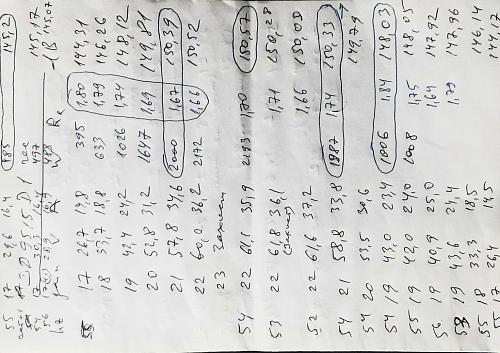 55 17 29,6 16,4 485 145,2
17 26,7 19,8 395 1,80 144,31
18 33,7 18,8 633 1,79 146,26
19 42,4 24,2 1026 1,74 148,12
20 52,8 31,2 1647 1,69 149,81
21 57,8 34,6 2000 1,67 150,39
22 60,0 36,2 2172 1,66 150,52
23
54 22 61,1 35,9 2193 1,70 150,57
53 22 61,8 36,1 1,71 150,28
52 22 61,6 37,2 1,66 150,00
54 21 58,8 33,8 1987 1,74 150,33
54 20 53,5 30,6 149,79
54 19 43,0 23,4 1006 1,84 148,03
55 19 42,0 24,0 1008 1,75 148,05
56 19 40,9 25,0 1,64 147,92
53 19 43,6 24,4 1,79 147,96
55 18 33,3 18,5 146,14
55 17 26,4 14,5